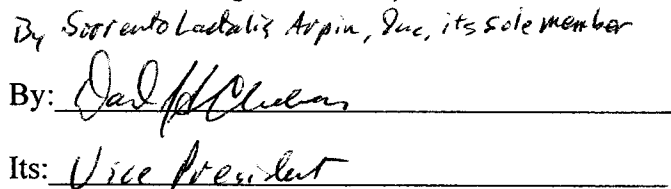 By Sorrento Lactalis Arpin, Inc, its sole member
By:
Its: Vice President